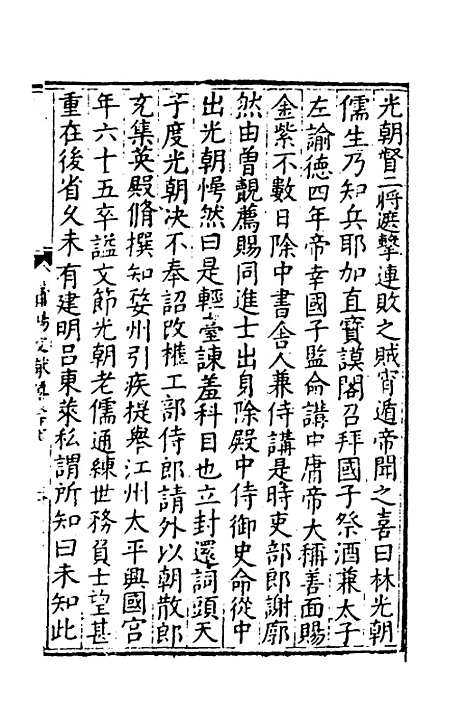 光朝督二將遮擊連敗之賊宵遁帝聞之喜曰林光朝
儒生乃知兵耶加直寶謨閣召拜國子祭酒兼太子
左諭德四年帝幸國子監命講中庸帝大稱善面賜
金紫不數日除中書舍人兼侍講是時吏部郎謝廓
然由曾覿薦賜同進士出身除殿中侍御史命從中
出光朝愕然曰是輕臺諫羞科目也立封還詞頭天
子度光朝决不奉詔改權工部侍郎請外以朝散郎
充集英殿脩撰知婺州引疾提舉江州太平興國宮
年六十五卒謚文節光朝老儒通練世務負士望甚
重在後省久未有建明吕東萊私謂所知曰未知此
莆陽文獻